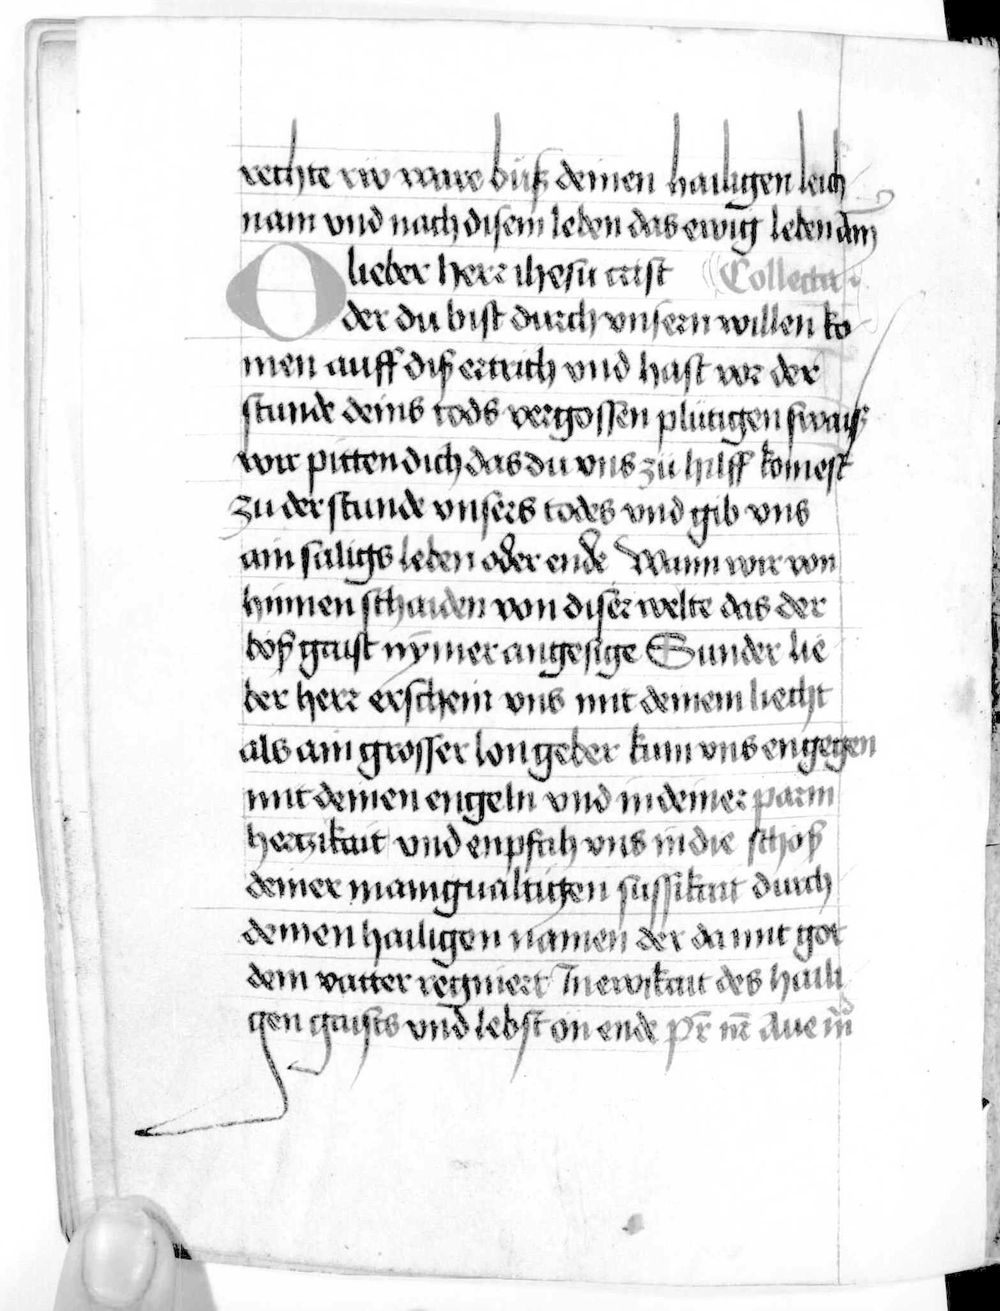 rechte riw ware búß deinen hailigen leich
nam vnd nach disem leben das ewig leben am̄
O lieber herr ihesu crist Collecta
der du bist durch vnsern willen ko
men auff diß ertrich vnd hast vor der
stunde deins tods vergossen plútigen swaiß
wir pitten dich das du vns zú hilff komest
zu der stunde vnsers todes vnd gib vns
ain säligs leben oder ende Wann wir von
hinnen schaiden von diser welte das der
böß gaist nymer angesige Sunder lie
ber herr erschein vns mit deinem liecht
als ain grosser longeber kum vns engegen
mit deinen engeln vnd in deiner parm
hertzikait vnd enpfah vns in die schoß
deiner manigualtigen süssikait durch
deinen hailigen namen der da mit got
dem vatter regniert In ewikait des haili
gen gaists vnd lebst on ende pr̄ nr̄ Aue m̄